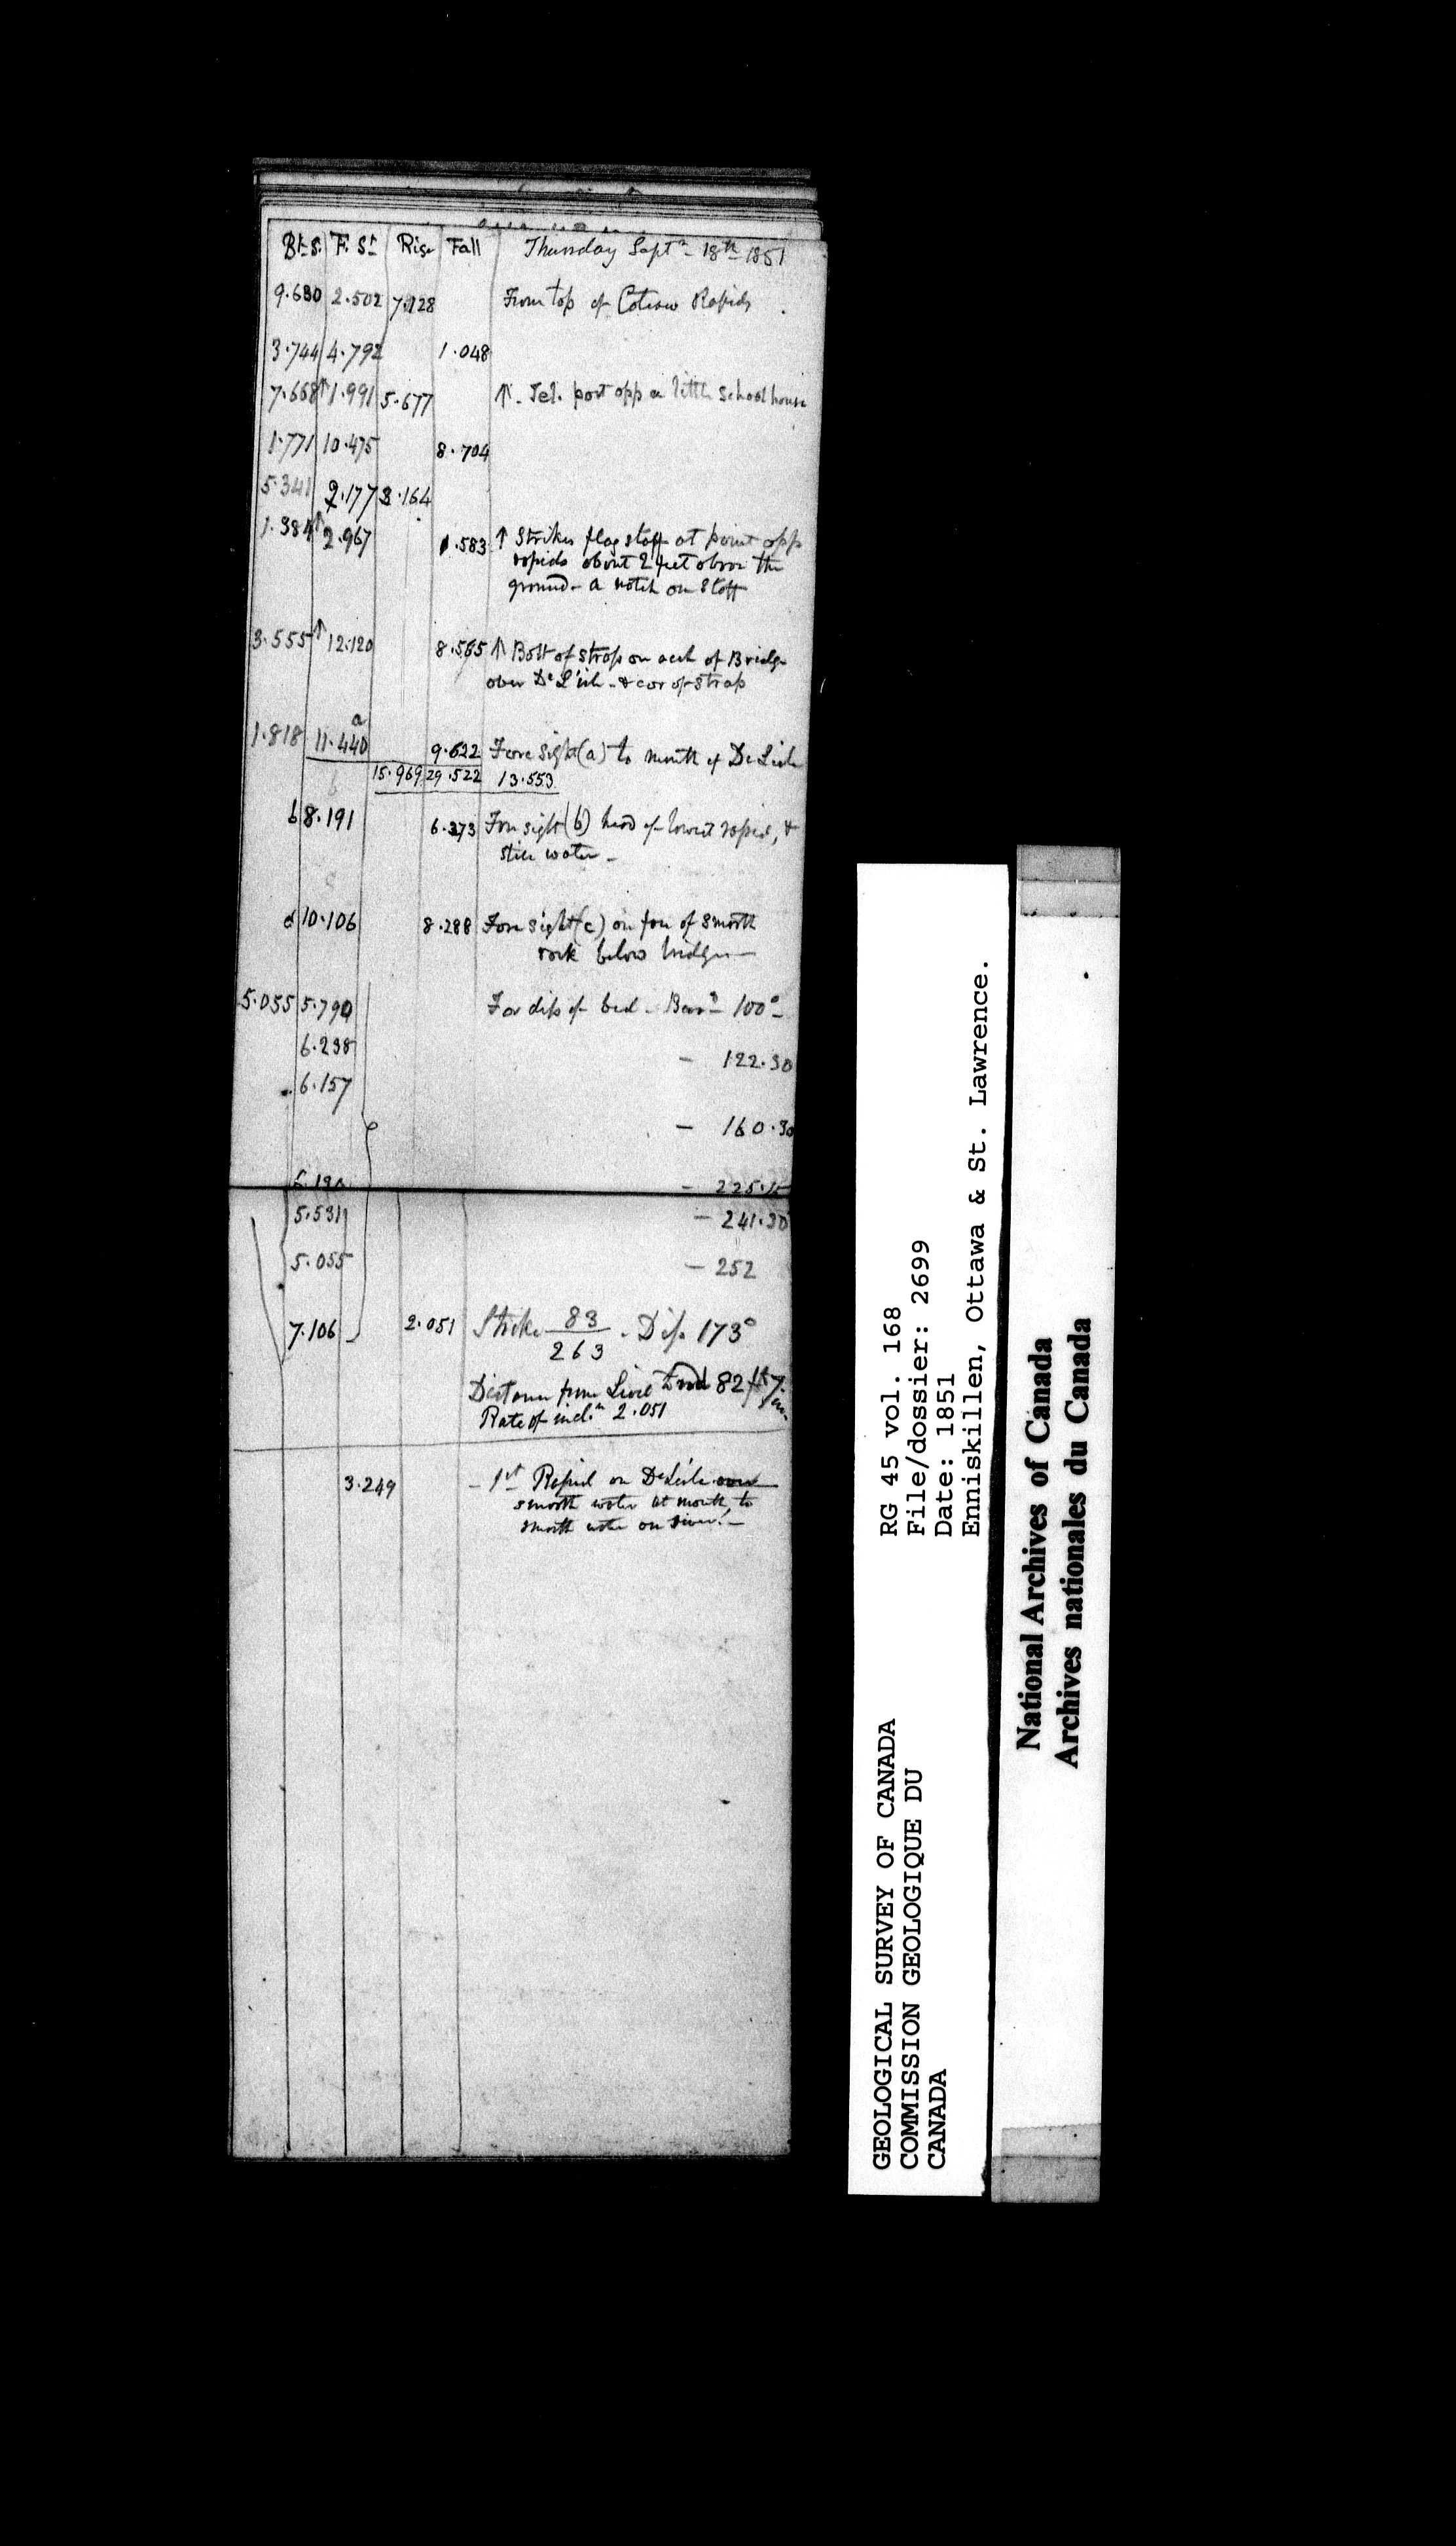 Bk S. F. St Rise Fall Thursday Septr 18th 1851
9.630 2.502 7.128 From top of Coteau Rapids
3.744 4.792 1.048
7.668 ↑ 1.991 5.677 ↑ Tel. post opp a little school house
1.771 10.475 8.704
5.341 2.177 3.164
1.384 ↑ 2.967 1.583 ↑ Strikes flag staff at point opp
rapids about 2 feet above the
ground - a notch on staff
3.555 ↑ 12.120 8.565 ↑ Bolt of strap on of Bridge
over De L'isle - & cor of strap
a
1.818 11.440 9.622 Fore sight (a) to mouth of De Lisle
15.969 29.522 13.553
b 8.191 6.373 Fore sight (b) head of lowest rapid, &
still water -
10.106 8.288 Fore sight (c) on of smooth
rock below bridge -
5.055 5.790 For dip of bed - Bear^g 100°
6.238 - 122.30
6.157
- 160.30
- 225.15
5.531 - 241.30
5.055 - 252
7.106 2.051 Strike 83/263 . Dip 173°
Distance from Level 82 ft 7 in
Rate of incln 2.051
3.249 - 1st Rapid on De Lisle
smooth water at mouth, to
smooth water on river. -
RG 45 vol. 168
File/dossier: 2699
Date: 1851
Enniskillen, Ottawa & St. Lawrence.
GEOLOGICAL SURVEY OF CANADA
COMMISSION GEOLOGIQUE DU
CANADA
National Archives of Canada
Archives nationales du Canada